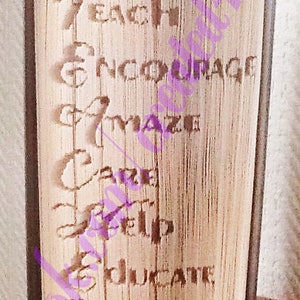 Teach
Encourage
Amaze
Care
Help
Educate